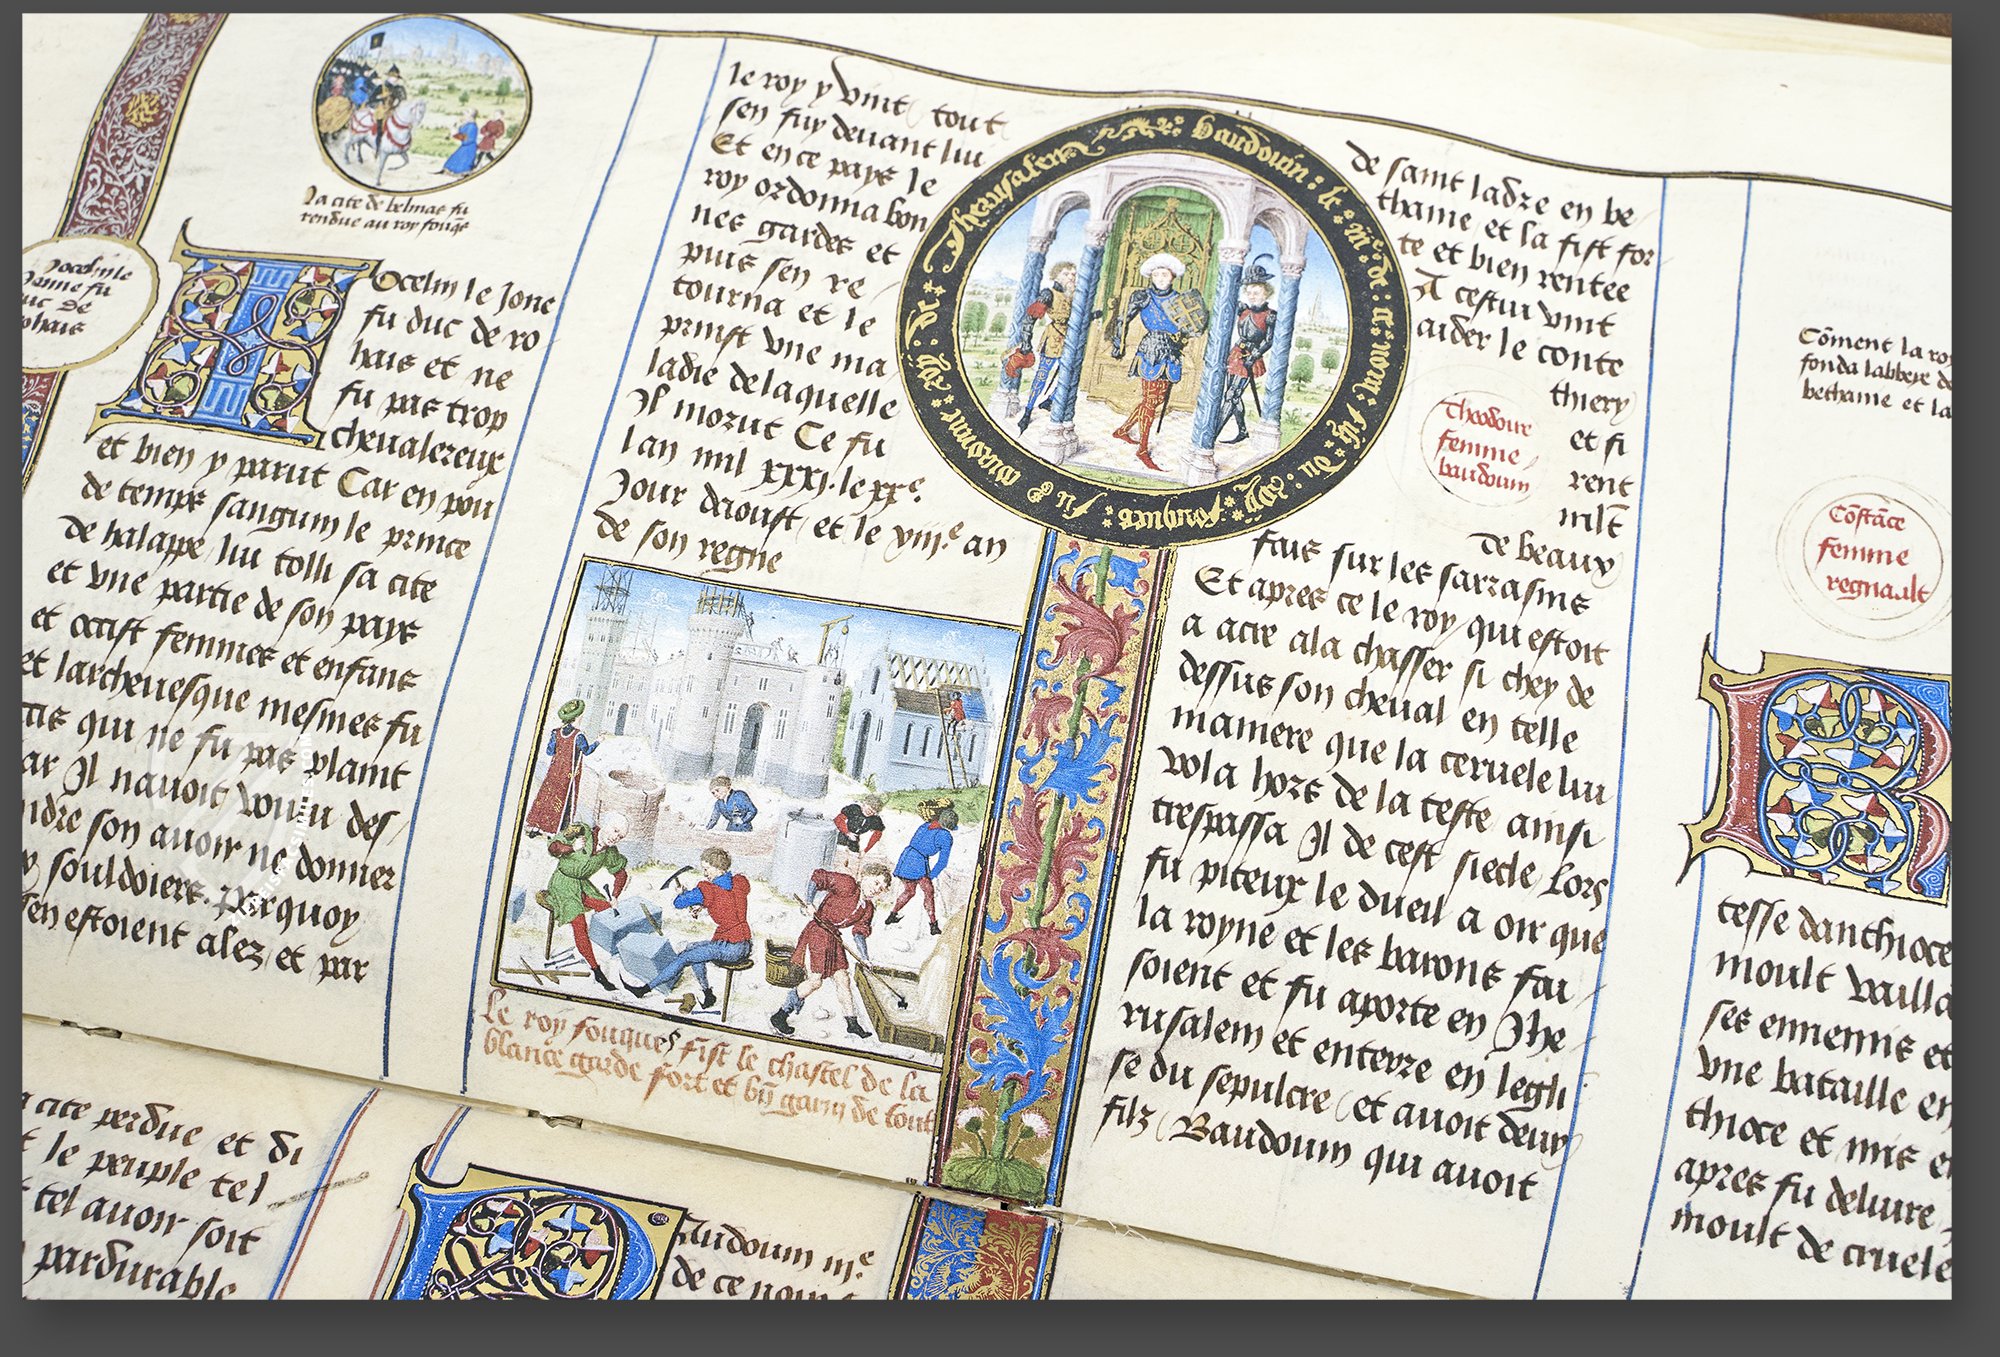 la cite de belmas fu
rendue au roy fouqs
Jocelin le
Jonne fu
duc de
rohais
Jocelin le Jone
fu duc de ro
hais et ne
fu pas trop
cheualereux
et bien y parut Car en pou
de temps sanguin le prince
de halappe luy tolli sa cite
et vne partie de son pays
et occist femmes et enfans
et larcheuesque mesmes fu
qui ne fu pas plaint
ar Il nauoit voulu des
ndre son auoir ne donner
souldoiers. parquoy
sen estoient alez et par
le roy y vint tout
sen fuy deuant luy
Et en ce pays le
roy ordonna bon
nes gardes et
puis sen re
tourna et le
prinst vne ma
ladie de laquelle
Il morut Ce fu
lan mil xxxj. le xxe.
Jour daoust et le viije an
de son regne
Le roy fouques fist le chastel de la
blance garde fort et bñ garni de tout
baudouin : le : iije : de : ce nom : filz : du : roy : fouques : fu : couronne : roy : de : Iherusalem
de saint ladre en be
thanie et la fist for
te et bien rentee
A cestui vint
aider le conte
thiery
et fi
rent
mlt
de beaux
fais sur les sarrasins
Et apres ce le roy qui estoit
a acre ala chasser si chey de
dessus son cheual en telle
maniere que la ceruele luy
vola hors de la teste ainsi
trespassa Il de cest siecle Lors
fu piteux le dueil a oir que
la royne et les barons fai
soient et fu aporte en Jhe
rusalem et enterre en legli
se du sepulcre et auoit deux
filz Baudouin qui auoit
theodoire
femme
baudouin
Cõment la roy
fonda labbeye de
bethanie et la
Cõstãce
femme
regnault
B
tesse danthioce
moult vailla
ses ennemis et
vne bataille en
thioce et mis e
apres fu deliure
moult de cruele
a cite perdue et di
t le peuple tel
tel auoir soit
pardurable
Baudouin iije
de ce nom f